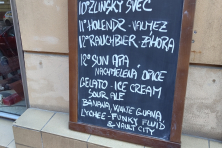 10° ZLINSKÝ ŠVEC
11° HOLENDR - VALMEZ
12° RAUCHBIER ZÁHORA
12° SUN APA
NACHMELENÁ OPICE
GELATO - ICE CREAM
SOUR ALE
BANANA, WHITE GUAVA
LYCHEE - FUNKY FLUID
& VAULT CITY